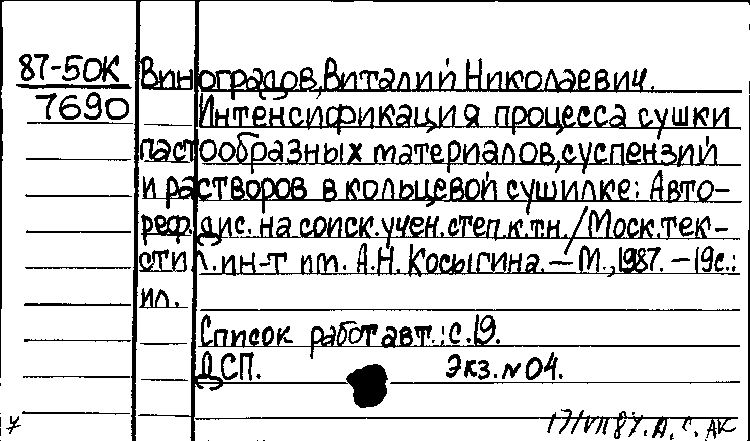 87-50К Виноградов, Виталий Николаевич.
7690 Интенсификация процесса сушки
пастообразных материалов, суспензий
и растворов в кольцевой сушилке: Авто-
реф. дис. на соиск. учен. степ. к.т.н. / Моск. тек-
стил. ин-т им. А.Н. Косыгина. — М., 1987. — 19с.:
ил.
Список работ авт.: с.19.
ДСП. Экз. № 04.
17/VII 87. А. С. АК